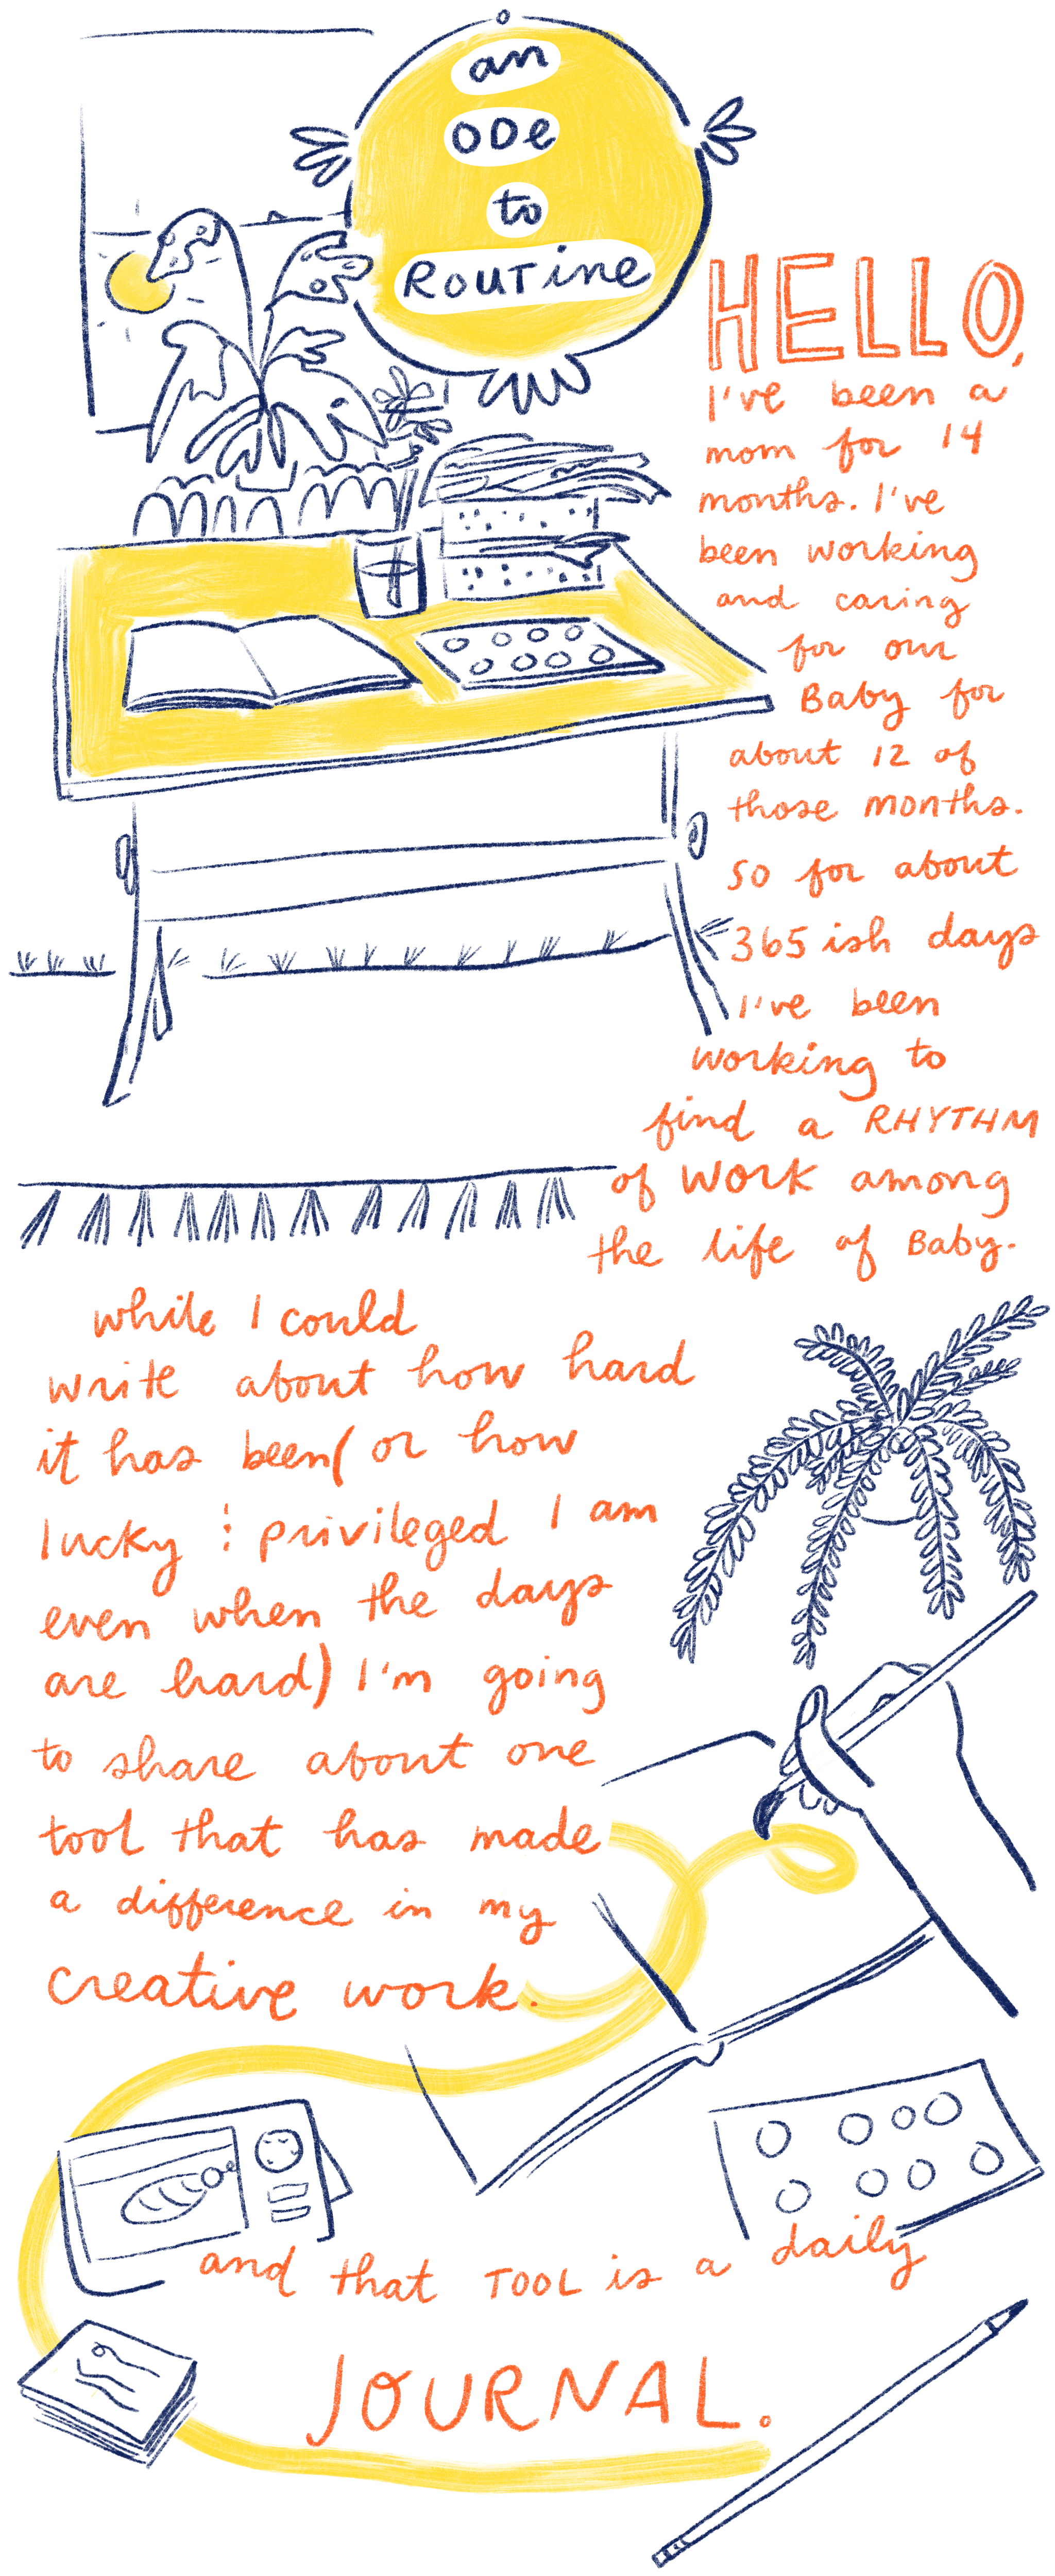 an
ODe
to
ROUTine
HELLO,
I've been a
mom for 14
months. I've
been working
and caring
for our
Baby for
about 12 of
those months.
So for about
365 ish days
I've been
working to
find a RHYTHM
of WORK among
the life of Baby.
while I could
write about how hard
it has been (or how
lucky & privileged I am
even when the days
are hard) I'm going
to share about one
tool that has made
a difference in my
creative work.
and that TOOL is a daily
JOURNAL.